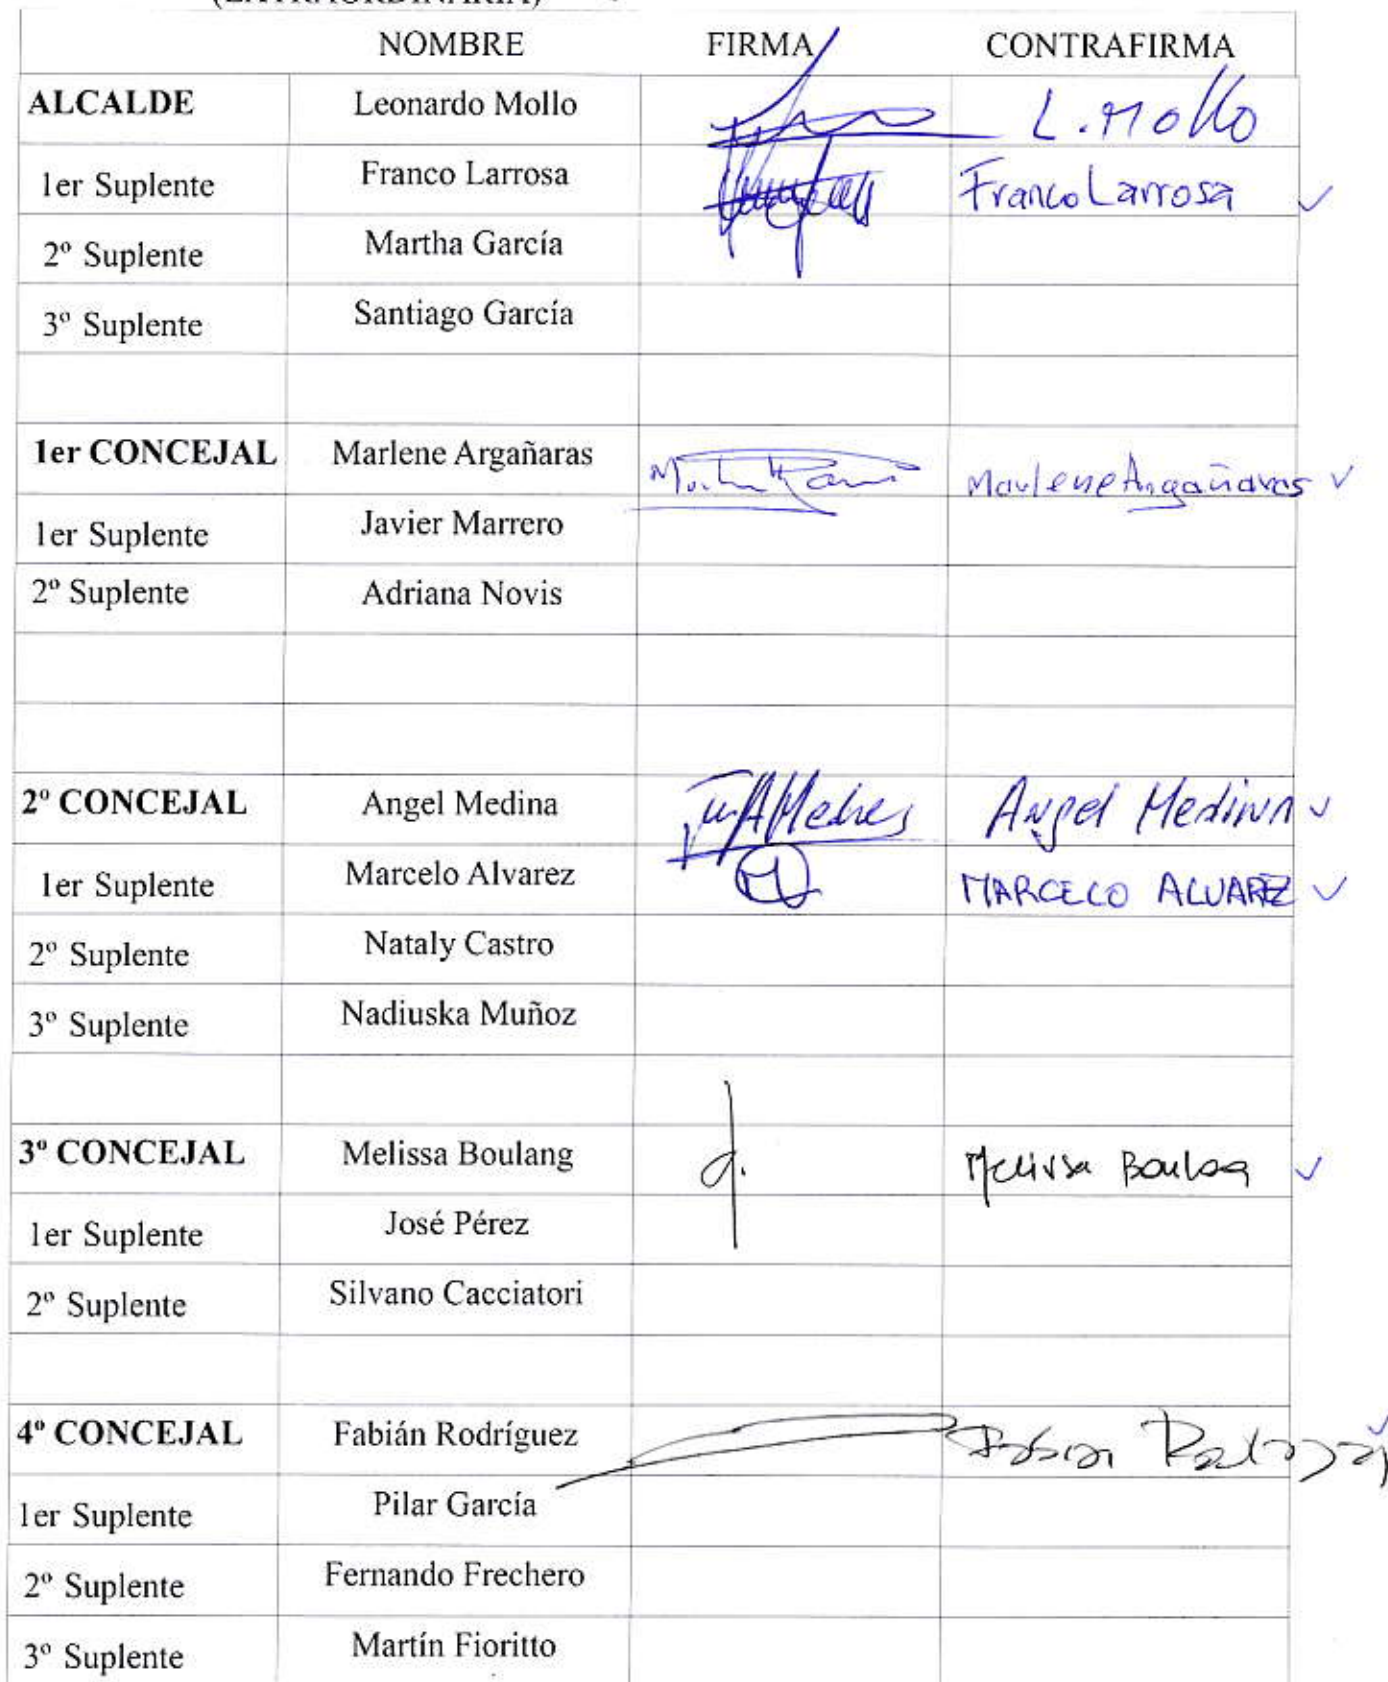 (EXTRAORDINARIA)
NOMBRE FIRMA CONTRAFIRMA
ALCALDE Leonardo Mollo L. Mollo
1er Suplente Franco Larrosa Franco Larrosa
2º Suplente Martha García
3º Suplente Santiago García
1er CONCEJAL Marlene Argañaras Marlene Argañaras
1er Suplente Javier Marrero
2º Suplente Adriana Novis
2º CONCEJAL Angel Medina Angel Medina
1er Suplente Marcelo Alvarez MARCELO ALVAREZ
2º Suplente Nataly Castro
3º Suplente Nadiuska Muñoz
3º CONCEJAL Melissa Boulang Melissa
1er Suplente José Pérez
2º Suplente Silvano Cacciatori
4º CONCEJAL Fabián Rodríguez Fabian
1er Suplente Pilar García
2º Suplente Fernando Frechero
3º Suplente Martín Fioritto